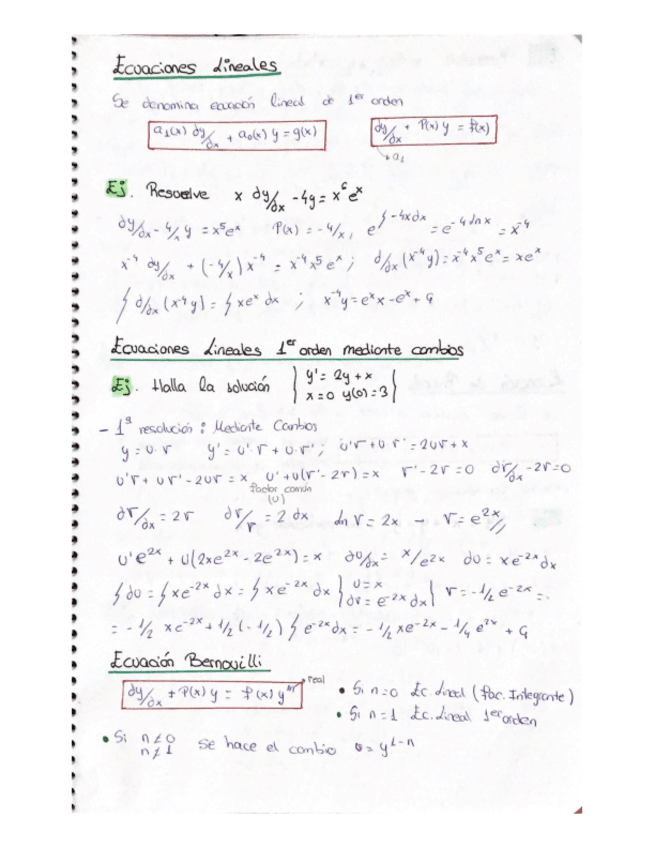 Ecuaciones Lineales
Se denomina ecuación lineal de 1er orden
a1(x) dy/dx + a0(x) y = g(x)
dy/dx + P(x) y = f(x)
→ a1
Ej. Resuelve x dy/dx - 4y = x^6 e^x
dy/dx - 4/x y = x^5 e^x P(x) = -4/x, e^∫-4xdx = e^-4 ln x = x^-4
x^-4 dy/dx + (-4/x) x^-4 = x^-4 x^5 e^x ; d/dx (x^-4 y) = x^-4 x^5 e^x = xe^x
∫ d/dx (x^-4 y) = ∫ xe^x dx ; x^-4 y = e^x x - e^x + C1
Ecuaciones Lineales 1er orden mediante cambios
Ej. Halla la solución { y' = 2y + x
x=0 y(0)=3 }
- 1ª resolución: Mediante Cambios
y = u·v y' = u'·v + u·v' ; u'v + u·v' = 2uv + x
u'v + uv' - 2uv = x u' + u(v' - 2v) = x v' - 2v = 0 dv/dx - 2v = 0
factor común
(u)
dv/dx = 2v dv/v = 2 dx ln v = 2x → v = e^2x //
u'e^2x + u(2xe^2x - 2e^2x) = x du/dx = x/e^2x du = xe^-2x dx
∫ du = ∫ xe^-2x dx = ∫ xe^-2x dx } u = x
dv = e^-2x dx { v = -1/2 e^-2x =
= -1/2 xe^-2x + 1/2 (-1/2) ∫ e^-2x dx = -1/2 xe^-2x - 1/4 e^2x + C1
Ecuación Bernouilli
dy/dx + P(x) y = f(x) y^n → real
• Si n=0 Ec. Lineal (fac. Integrante)
• Si n=1 Ec. Lineal 1er orden
• Si n≠0
n≠1 se hace el cambio u = y^1-n